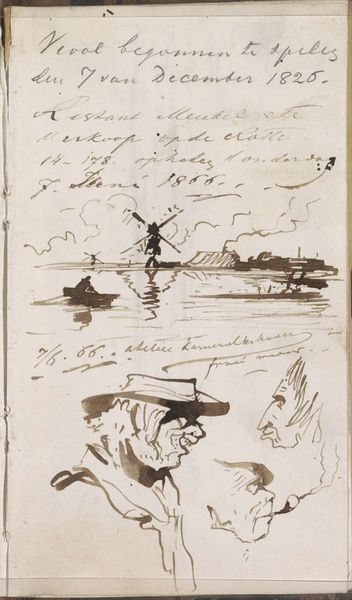 Viool begonnen te spelen
den 7 van December 1826.
Restant Meubel
verkoop op de Rotte
14-178. op heden donderdag
7. 1866.
7/6. 66. atelier
fraai